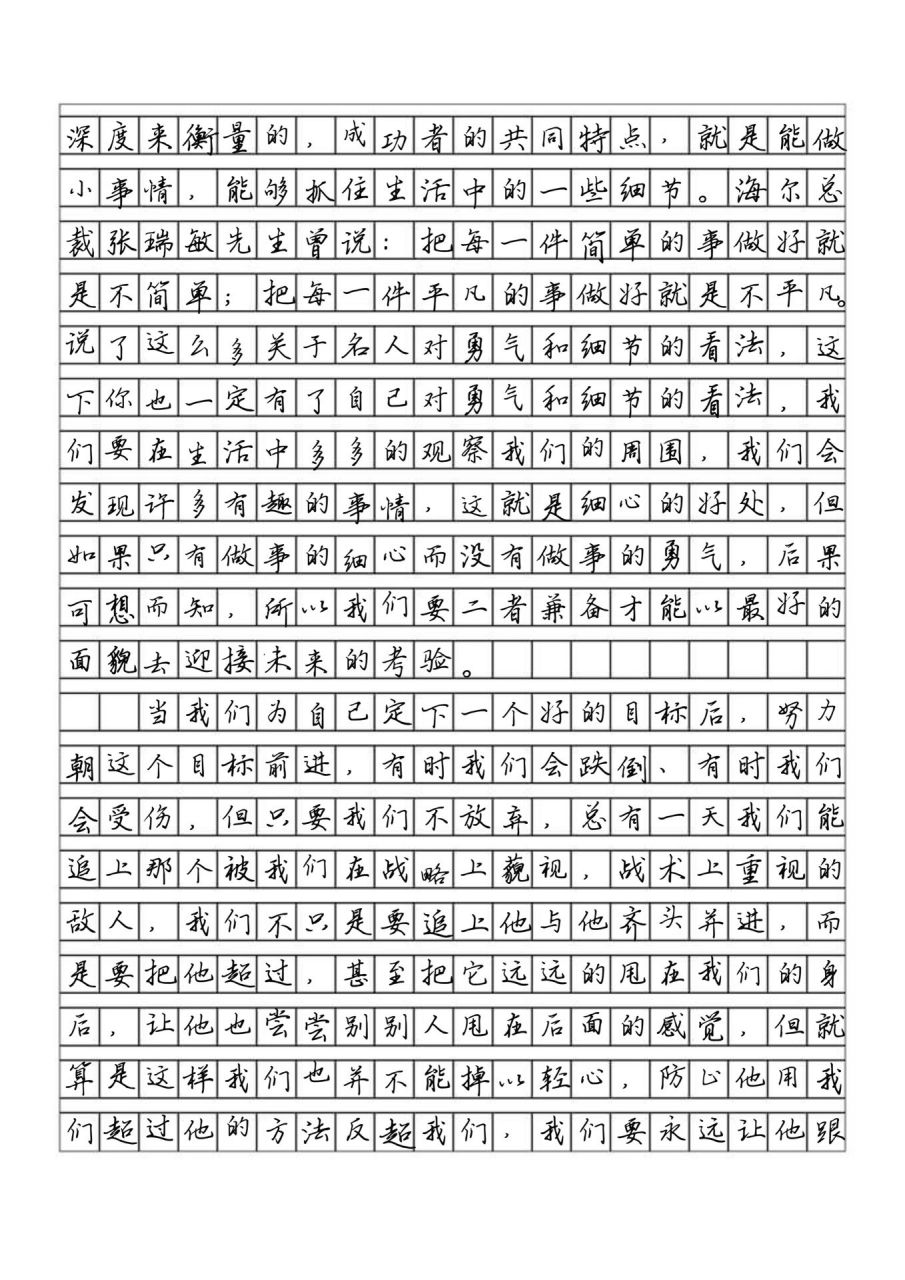 深度来衡量的，成功者的共同特点，就是能做
小事情，能够抓住生活中的一些细节。海尔总
裁张瑞敏先生曾说：把每一件简单的事做好就
是不简单；把每一件平凡的事做好就是不平凡。
说了这么多关于名人对勇气和细节的看法，这
下你也一定有了自己对勇气和细节的看法，我
们要在生活中多多的观察我们的周围，我们会
发现许多有趣的事情，这就是细心的好处，但
如果只有做事的细心而没有做事的勇气，后果
可想而知，所以我们要二者兼备才能以最好的
面貌去迎接未来的考验。
当我们为自己定下一个好的目标后，努力
朝这个目标前进，有时我们会跌倒、有时我们
会受伤，但只要我们不放弃，总有一天我们能
追上那个被我们在战略上藐视，战术上重视的
敌人，我们不只是要追上他与他齐头并进，而
是要把他超过，甚至把它远远的甩在我们的身
后，让他也尝尝别别人甩在后面的感觉，但就
算是这样我们也并不能掉以轻心，防止他用我
们超过他的方法反超我们，我们要永远让他跟